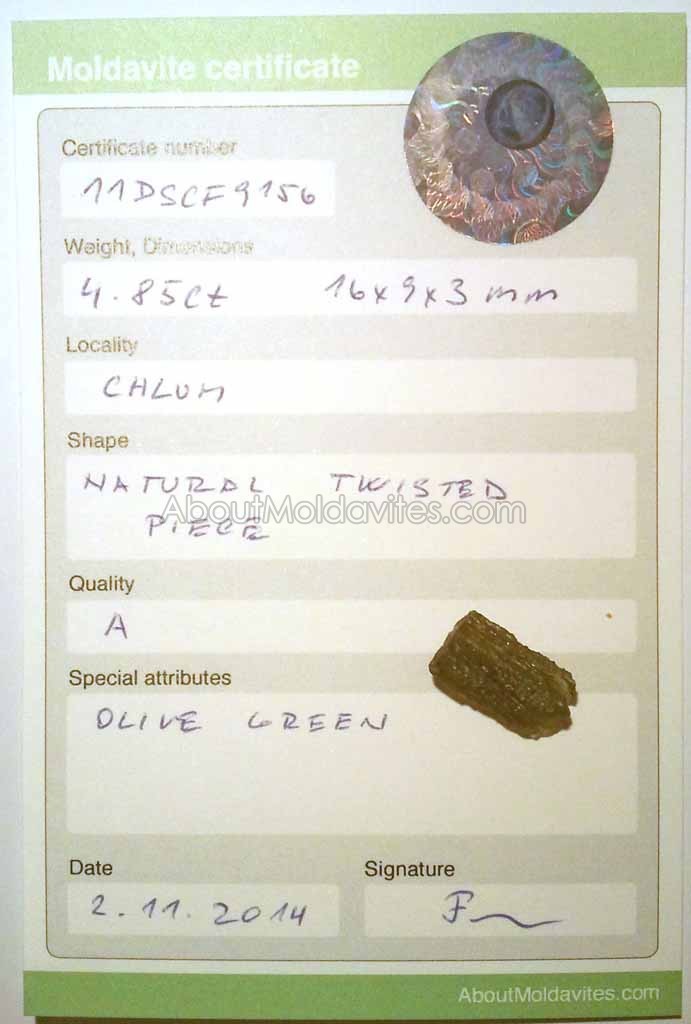 Moldavite certificate
Certificate number
11DSCF9156
Weight, Dimensions
4.85ct 16x9x3 mm
Locality
CHLUM
Shape
NATURAL TWISTED
AboutMoldavites.com
PIECE
Quality
A
Special attributes
OLIVE GREEN
Date Signature
2.11.2014
AboutMoldavites.com